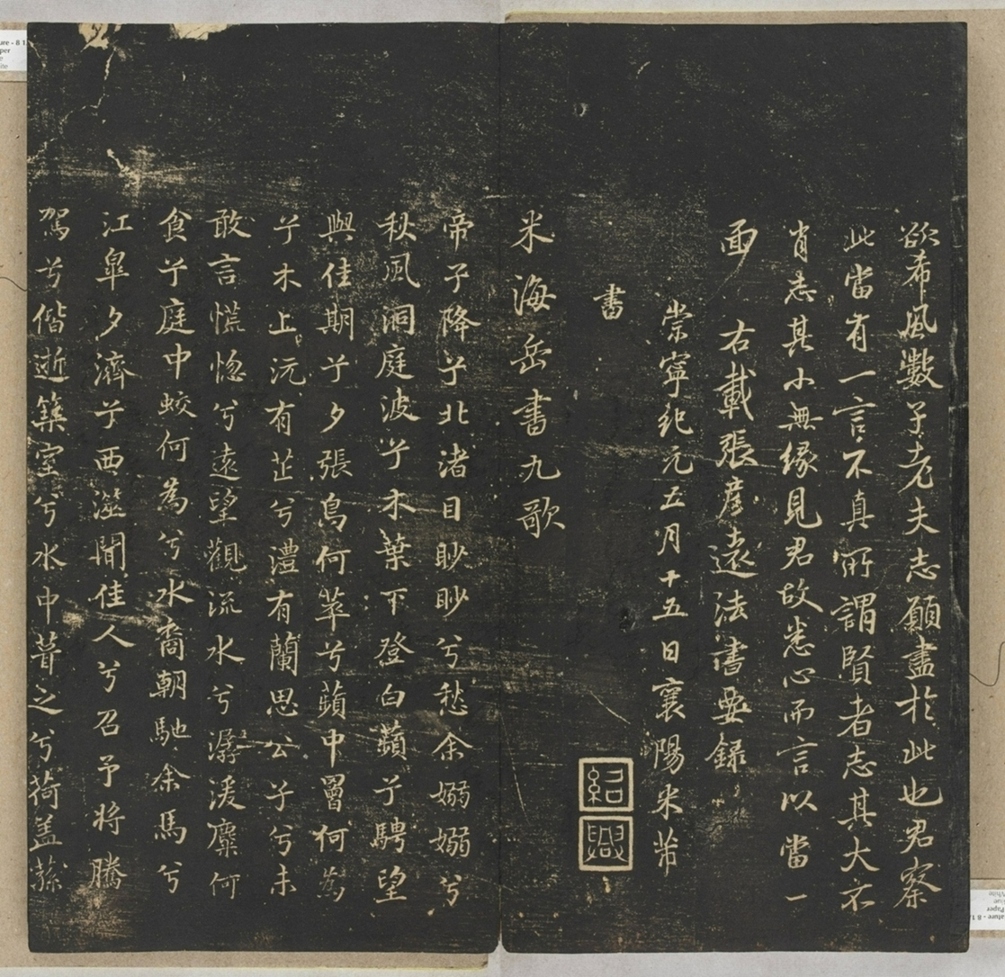 欲希風數子老夫志願盡於此也君察
此當有一言不真所謂賢者志其大不
肖志其小無緣見君故悉心而言以當一
面 右載張彦遠法書要錄
崇寧紀元五月十五日襄陽米芾
書
紹興
米海岳書九歌
帝子降兮北渚目眇眇兮愁余嫋嫋兮
秋風洞庭波兮木葉下登白蘋兮騁望
與佳期兮夕張鳥何萃兮蘋中罾何為
兮木上沅有芷兮澧有蘭思公子兮未
敢言慌惚兮遠望觀流水兮潺湲麋何
食兮庭中蛟何為兮水裔朝馳余馬兮
江皋夕濟兮西澨聞佳人兮召予將騰
駕兮偕逝築室兮水中葺之兮荷蓋蓀